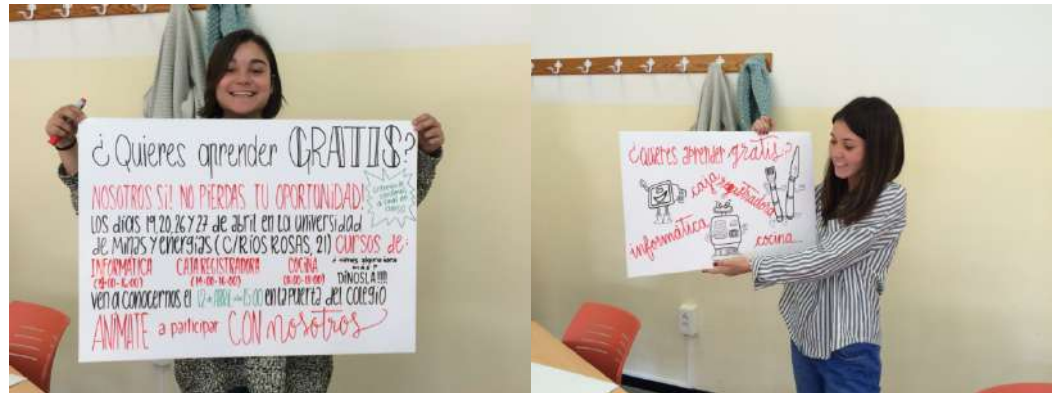 ¿Quieres aprender GRATIS?
NOSOTROS SÍ! NO PIERDAS TU OPORTUNIDAD!
Los días 19, 20, 26 y 27 de abril en la universidad
de Minas y energías (C/RÍOS ROSAS, 21) cursos de:
INFORMÁTICA CAJA REGISTRADORA COCINA
DÍNOSLA!!!!
ven a conocernos el 12 de ABRIL a las 15:00 en la puerta del colegio
ANÍMATE a participar CON nosotros
¿quieres aprender gratis?
caja registradora
informática
cocina...